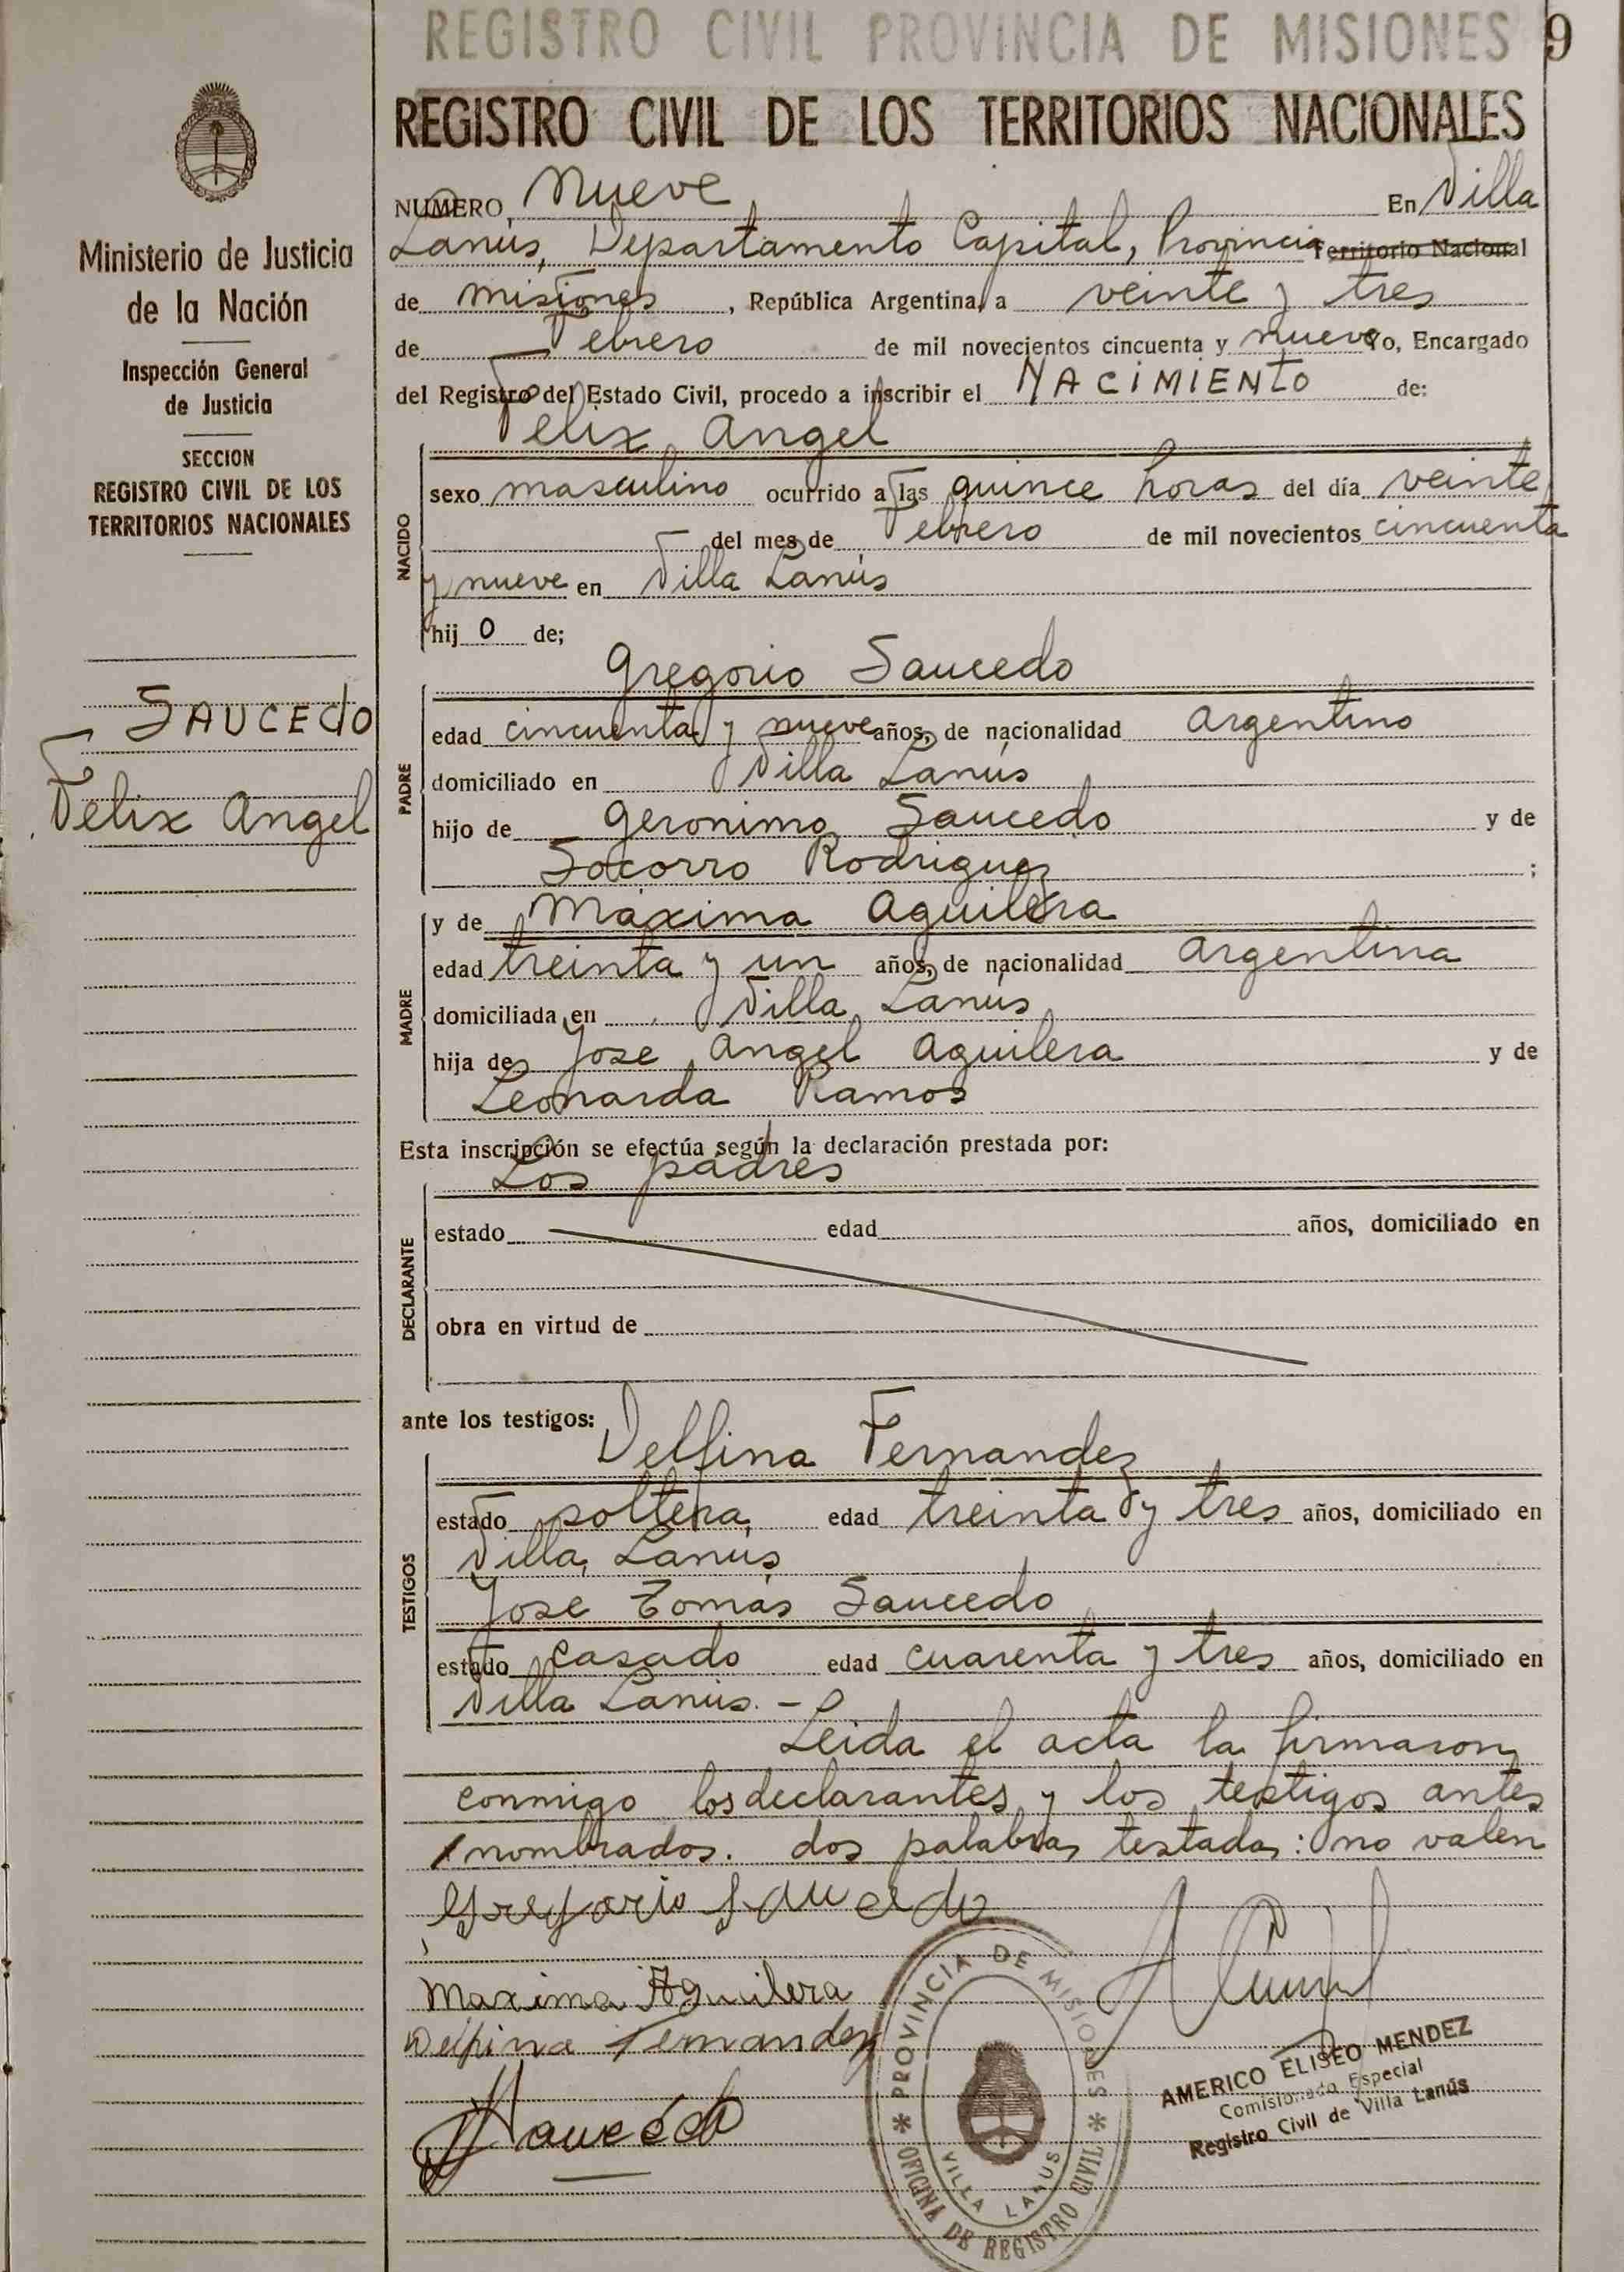 REGISTRO CIVIL PROVINCIA DE MISIONES 9
REGISTRO CIVIL DE LOS TERRITORIOS NACIONALES
Ministerio de Justicia
de la Nación
Inspección General
de Justicia
SECCION
REGISTRO CIVIL DE LOS
TERRITORIOS NACIONALES
SAUCEDO
Felix Angel
NUMERO Nueve En Villa
Lanús, Departamento Capital, Provincia Territorio Nacional
de Misiones, República Argentina, a veinte y tres
de Febrero de mil novecientos cincuenta y nueve Yo, Encargado
del Registro del Estado Civil, procedo a inscribir el NACIMIENTO de:
Felix Angel
NACIDO
sexo masculino ocurrido a las quince horas del día veinte
del mes de Febrero de mil novecientos cincuenta
y nueve en Villa Lanús
hij o de;
Gregorio Saucedo
PADRE
edad cincuenta y nueve años, de nacionalidad argentino
domiciliado en Villa Lanús
hijo de Geronimo Saucedo y de
Socorro Rodriguez ;
y de Maxima Aguilera
MADRE
edad treinta y un años, de nacionalidad argentina
domiciliada en Villa Lanús
hija de Jose Angel Aguilera y de
Leonarda Ramos
Esta inscripción se efectúa según la declaración prestada por:
Los padres
DECLARANTE
estado edad años, domiciliado en
obra en virtud de
ante los testigos:
Delfina Fernandez
TESTIGOS
estado soltera, edad treinta y tres años, domiciliado en
Villa Lanús
Jose Tomás Saucedo
estado casado edad cuarenta y tres años, domiciliado en
Villa Lanús. -
Leida el acta la firmaron
conmigo los declarantes y los testigos antes
nombrados. dos palabras testadas: no valen
Gregorio Saucedo
Maxima Aguilera
Delfina Fernandez
Saucedo
PROVINCIA DE MISIONES
OFICINA DE REGISTRO CIVIL
VILLA LANUS
AMERICO ELISEO MENDEZ
Comisionado Especial
Registro Civil de Villa Lanús